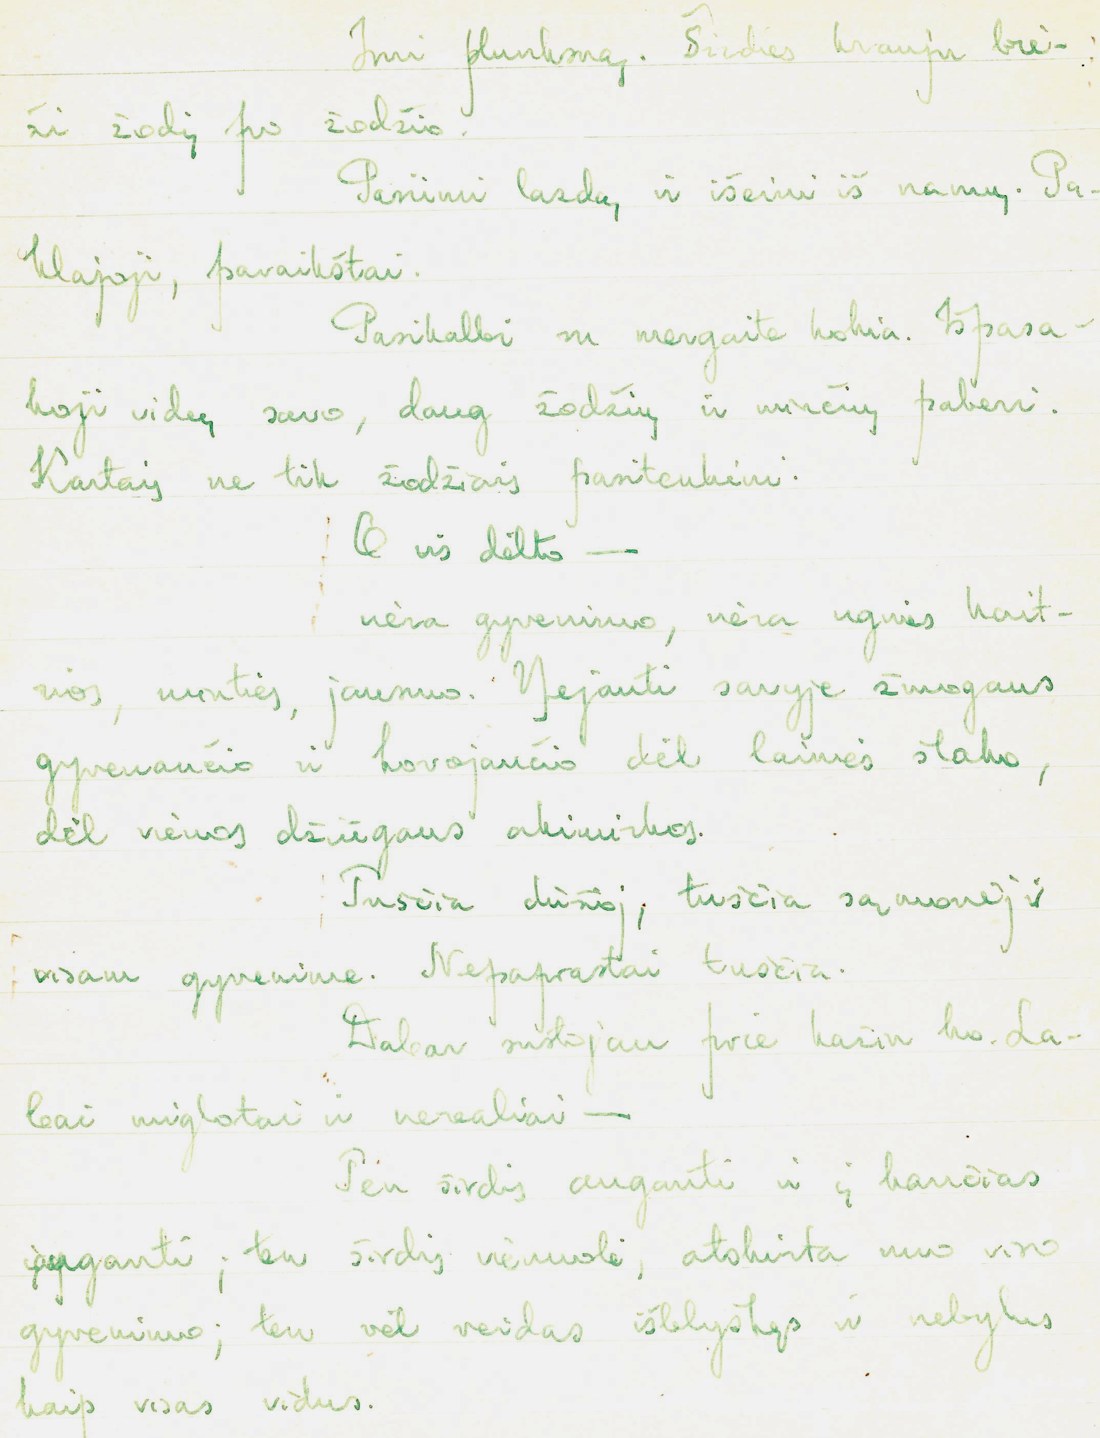 Imi plunksną. Širdies krauju brė-
ži žodį po žodžio.
Pasiimi lazdą ir išeini iš namų. Pa-
klajoji, pavaikštai.
Pasikalbi su mergaite kokia. Išpasa-
koji vidų savo, daug žodžių ir minčių paberi.
Kartais ne tik žodžiais pasitenkini.
O vis dėlto —
nėra gyvenimo, nėra ugnies kait-
rios, minties, jausmo. Nejauti savyje žmogaus
gyvenančio ir kovojančio dėl laimės šlako,
dėl vienos džiūgaus akimirkos.
Tuščia dūšioj, tuščia sąmonėj ir
visam gyvenime. Nepaprastai tuščia.
Dabar sustojau prie kažin ko. La-
bai miglotai ir nerealiai —
Ten širdis auganti ir į kančias
įauganti; ten širdis vienuolė, atskirta nuo viso
gyvenimo; ten vėl veidas išblyškęs ir nebylus
kaip visas vidus.